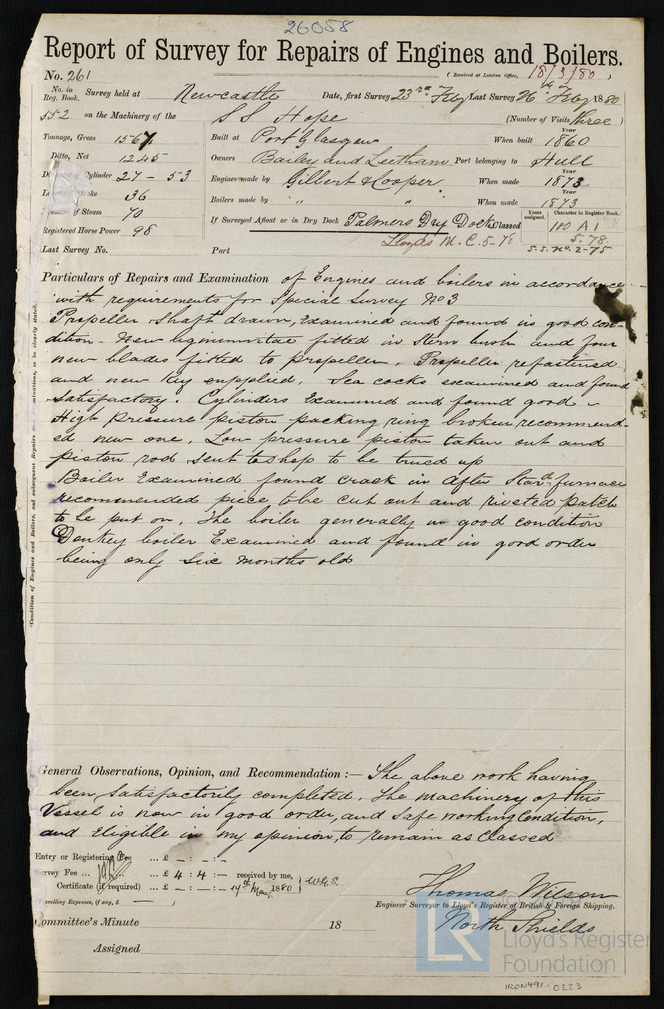 26058
Report of Survey for Repairs of Engines and Boilers.
No. 261 (Received at London Office, 18/3/80)
No. in Reg. Book. Survey held at Newcastle Date, first Survey 23rd Feby Last Survey 26th Feby 1880
552 on the Machinery of the SS Hope (Number of Visits three)
Tonnage, Gross 1567 Built at Port Glasgow When built Year 1860
Ditto, Net 1245 Owners Bailey and Leetham Port belonging to Hull
Cylinder 27 - 53 Engines made by Gilbert & Cooper When made Year 1873
36 Boilers made by " " When made Year 1873
of Steam 70 If Surveyed Afloat or in Dry Dock Palmers Dry Dock Classed Years assigned. Character in Register Book. 100 A1
Registered Horse Power 98 Lloyds M.C. 5-78 5.78.
Last Survey No. Port S.S. No. 2-75
Particulars of Repairs and Examination of Engines and boilers in accordance
with requirements for Special Survey No 3
Propeller shaft drawn, examined and found in good con-
dition. New lignumvitae fitted in Stern bush and four
new blades fitted to propeller. Propeller refastened
and new key supplied. Sea cocks examined and found
satisfactory. Cylinders Examined and found good -
High pressure piston packing ring broken recommend-
ed new one. Low pressure piston taken out and
piston rod sent to shop to be trued up
Boiler Examined found crack in after Starbd furnace
recommended piece to be cut out and riveted patch
to be put on. The boiler generally in good condition
Donkey boiler Examined and found in good order
being only six months old
(Condition of Engines and Boilers, and subsequent Repairs to be clearly stated.
General Observations, Opinion, and Recommendation :— The above work having
been satisfactorily completed. The machinery of this
Vessel is now in good order, and safe working Condition,
and Eligible in my opinion to remain as Classed
Entry or Registering Fee ... £ – : – : –
Survey Fee ... ... £ 4 : 4 : – received by me,
Certificate (if required) ... £ – : – : – 17th Mar 1880
Travelling Expenses, if any, £ —
Thomas Wilson
Engineer Surveyor to Lloyd's Register of British & Foreign Shipping.
North Shields
Committee's Minute 18
Assigned
LR Lloyd's Register
Foundation
IRON491-0223